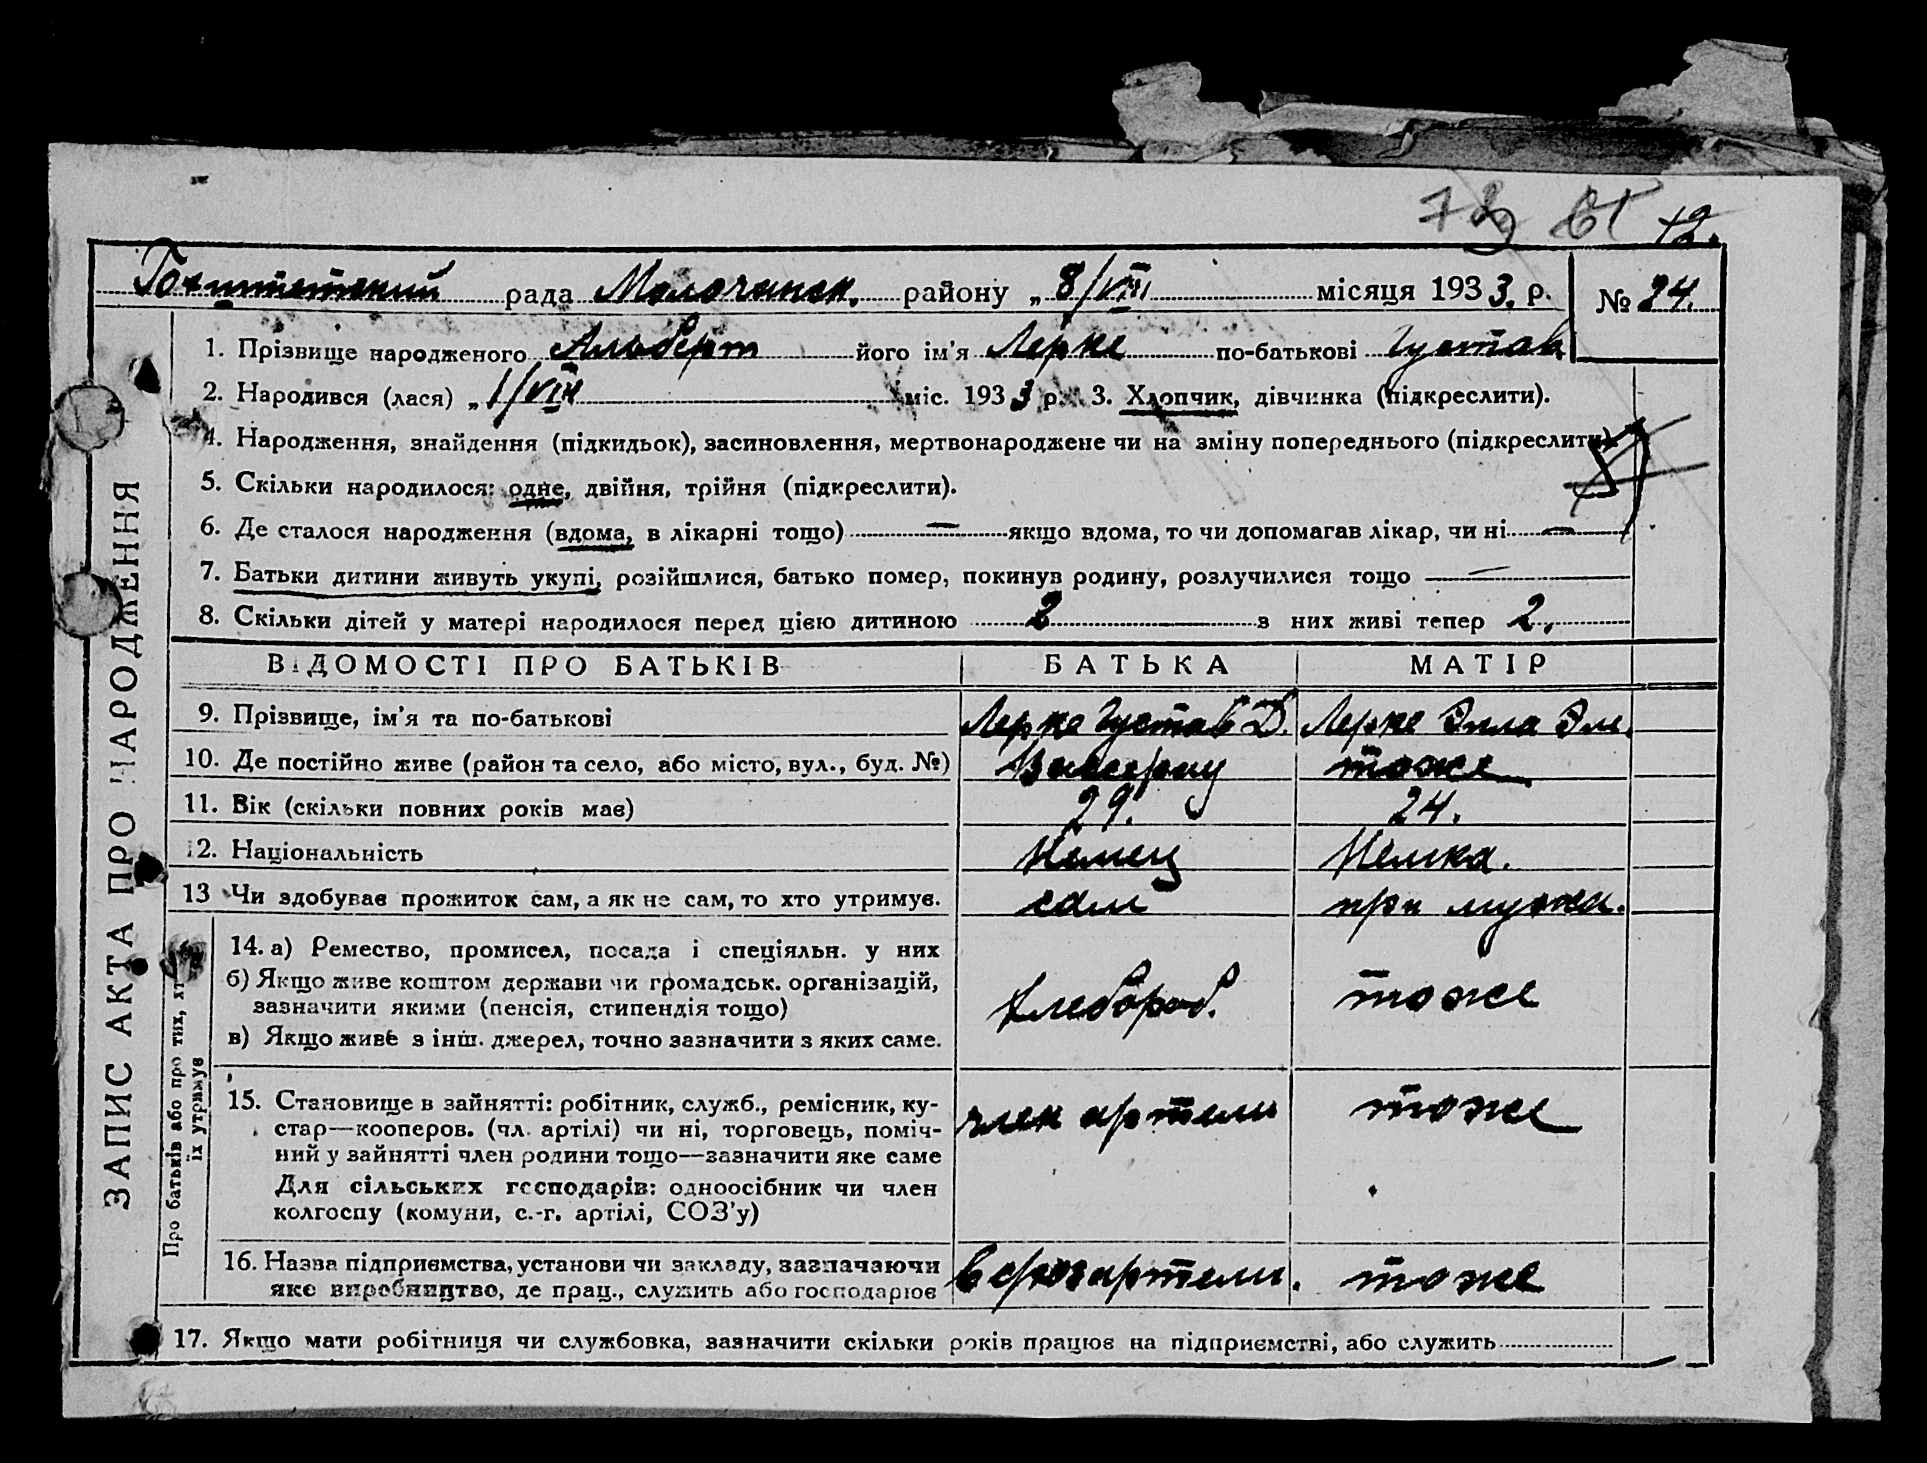 73 61 12.
Гохштетский рада Молочанск. району „ 8/VIII місяця 1933. р. № 24.
1. Прізвище народженого Альберт його ім'я Лерке по-батькові Густав
2. Народився (лася) „ 1/VIII міс. 1933 р. 3. Хлопчик, дівчинка (підкреслити).
4. Народження, знайдення (підкидьок), засиновлення, мертвонароджене чи на зміну попереднього (підкреслити)
5. Скільки народилося: одне, двійня, трійня (підкреслити).
6. Де сталося народження (вдома, в лікарні тощо) — якщо вдома, то чи допомагав лікар, чи ні —
7. Батьки дитини живуть укупі, розійшлися, батько помер, покинув родину, розлучилися тощо —
8. Скільки дітей у матері народилося перед цією дитиною 2 з них живі тепер 2.
ВІДОМОСТІ ПРО БАТЬКІВ БАТЬКА МАТІР
9. Прізвище, ім'я та по-батькові Лерке Густав Д. Лерке Элла Эм.
10. Де постійно живе (район та село, або місто, вул., буд. №) тоже
11. Вік (скільки повних років має) 29. 24.
12. Національність Немец Немка.
13 Чи здобуває прожиток сам, а як не сам, то хто утримує. сам при мужа.
14. а) Ремество, промисел, посада і спеціяльн. у них
б) Якщо живе коштом держави чи громадськ. організацій,
зазначити якими (пенсія, стипендія тощо) хлебороб. тоже
в) Якщо живе з інш. джерел, точно зазначити з яких саме.
15. Становище в зайнятті: робітник, служб., ремісник, ку-
стар—кооперов. (чл. артілі) чи ні, торговець, поміч- член артели тоже
ний у зайнятті член родини тощо—зазначити яке саме
Для сільських господарів: одноосібник чи член
колгоспу (комуни, с.-г. артілі, СОЗ'у)
16. Назва підприємства, установи чи закладу, зазначаючи
яке виробництво, де прац., служить або господарює в сельхозартели. тоже
17. Якщо мати робітниця чи службовка, зазначити скільки років працює на підприємстві, або служить
ЗАПИС АКТА ПРО НАРОДЖЕННЯ
Про батьків або про тих, хт
їх утримує